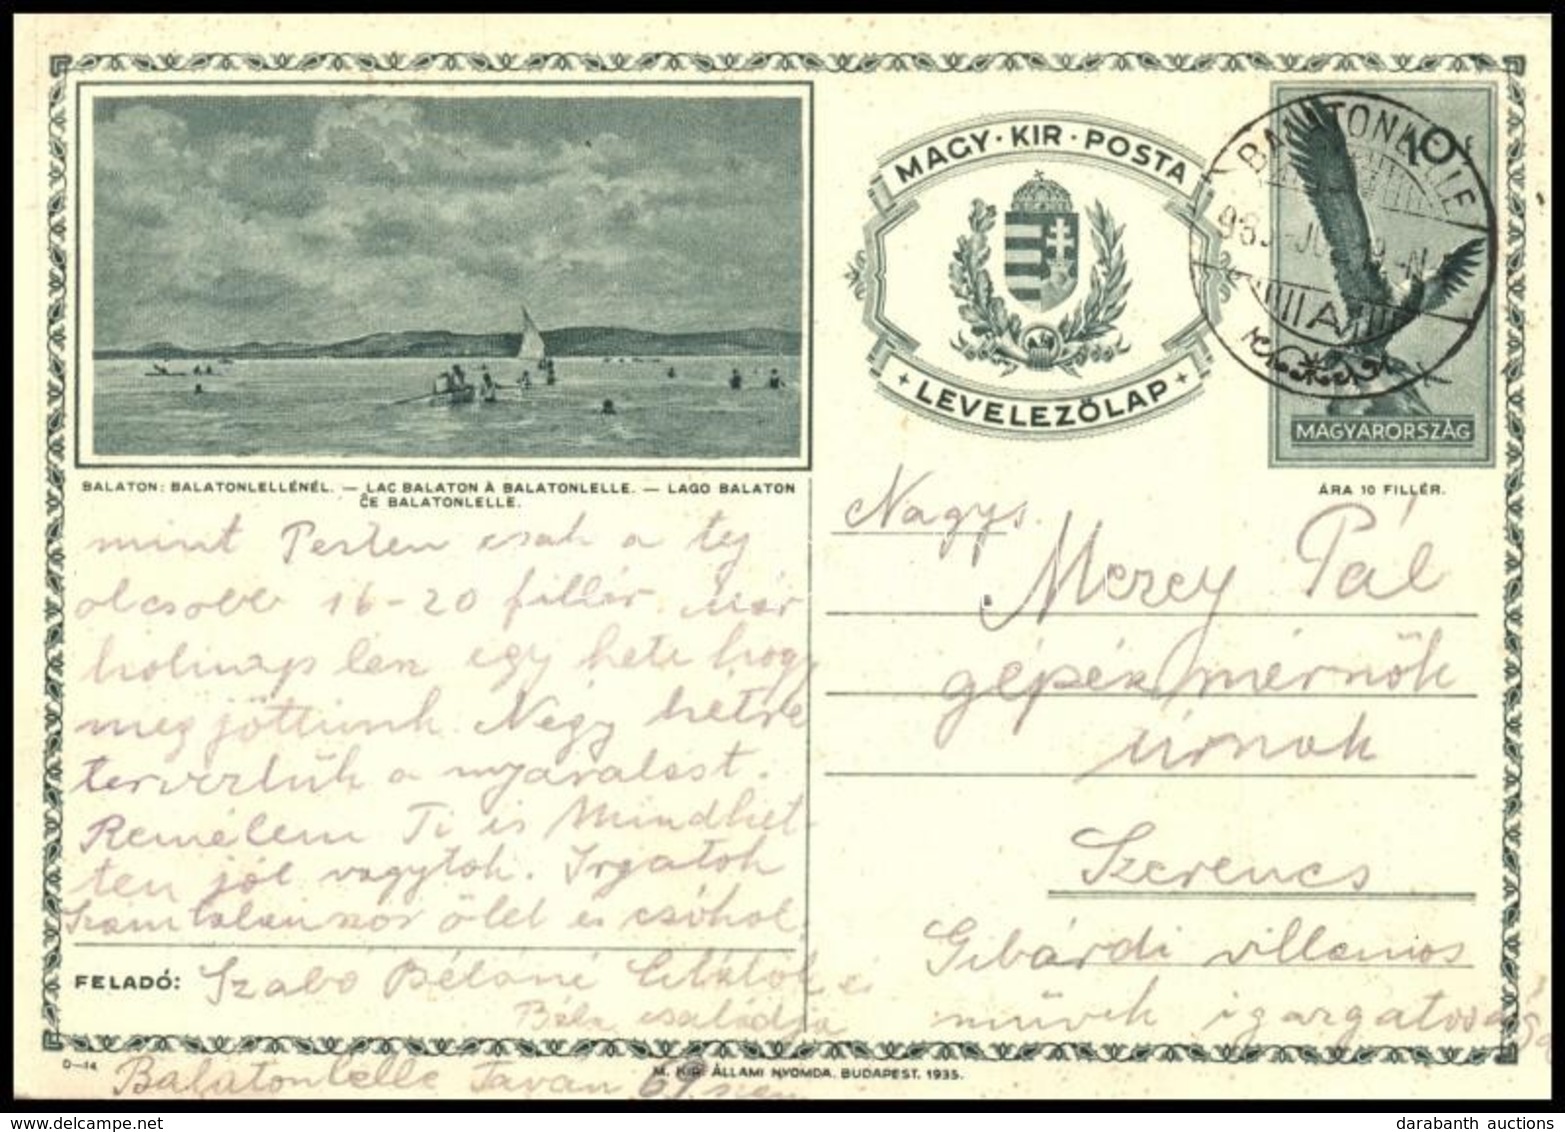 MAGY · KIR · POSTA
LEVELEZŐLAP
BALATONLELLE
A
10 f
MAGYARORSZÁG
ÁRA 10 FILLÉR.
BALATON: BALATONLELLÉNÉL. — LAC BALATON À BALATONLELLE. — LAGO BALATON
ĈE BALATONLELLE.
mint Pesten csak a tej
olcsobb 16-20 fillér. Már
holnap lesz egy hete hogy
megjöttünk. Négy hétre
terveztük a nyaralást.
Remélem Ti is Mindhet-
ten jól vagytok. Irgatok
Szamtalanszor ölel és csókol
FELADÓ: Szabó Béláné
Béla családja
Balatonlelle 69
Nagys.
Mezey Pál
gépész mérnök
úrnak
Szerencs
Gibárdi villamos
művek igazgatósága
D—14
M. KIR. ÁLLAMI NYOMDA. BUDAPEST. 1935.
darabanth auctions